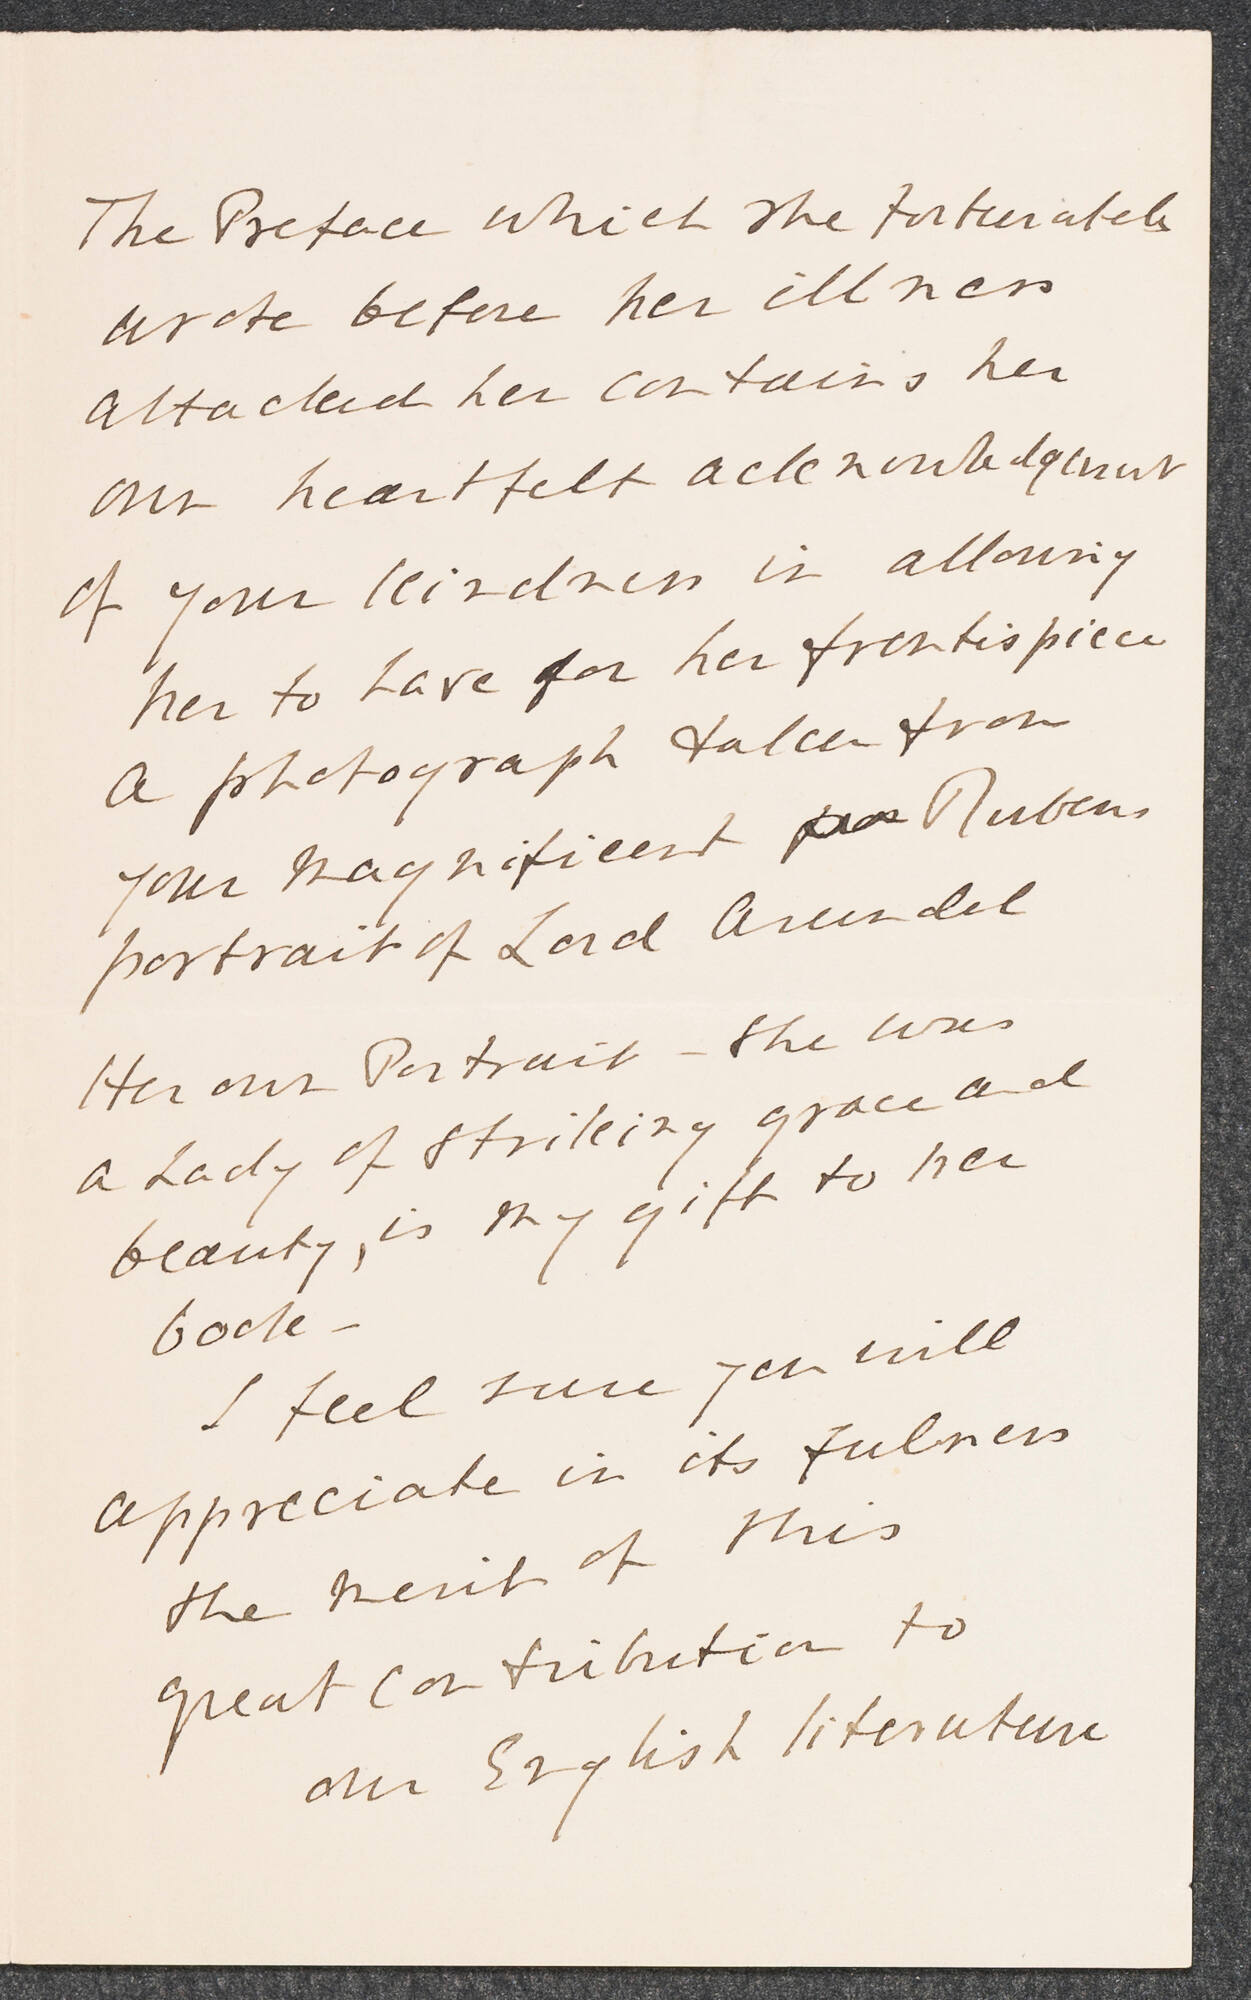 The Preface which she fortunately
wrote before her illness
attacked her contains her
own heartfelt acknowledgment
of your kindness in allowing
her to have for her frontispiece
a photograph taken from
your magnificent Rubens
portrait of Lord Arundel
Her own Portrait - she was
a Lady of striking grace and
beauty, is my gift to her
book -
I feel sure you will
appreciate in its fulness
the merit of this
great contribution to
our English literature